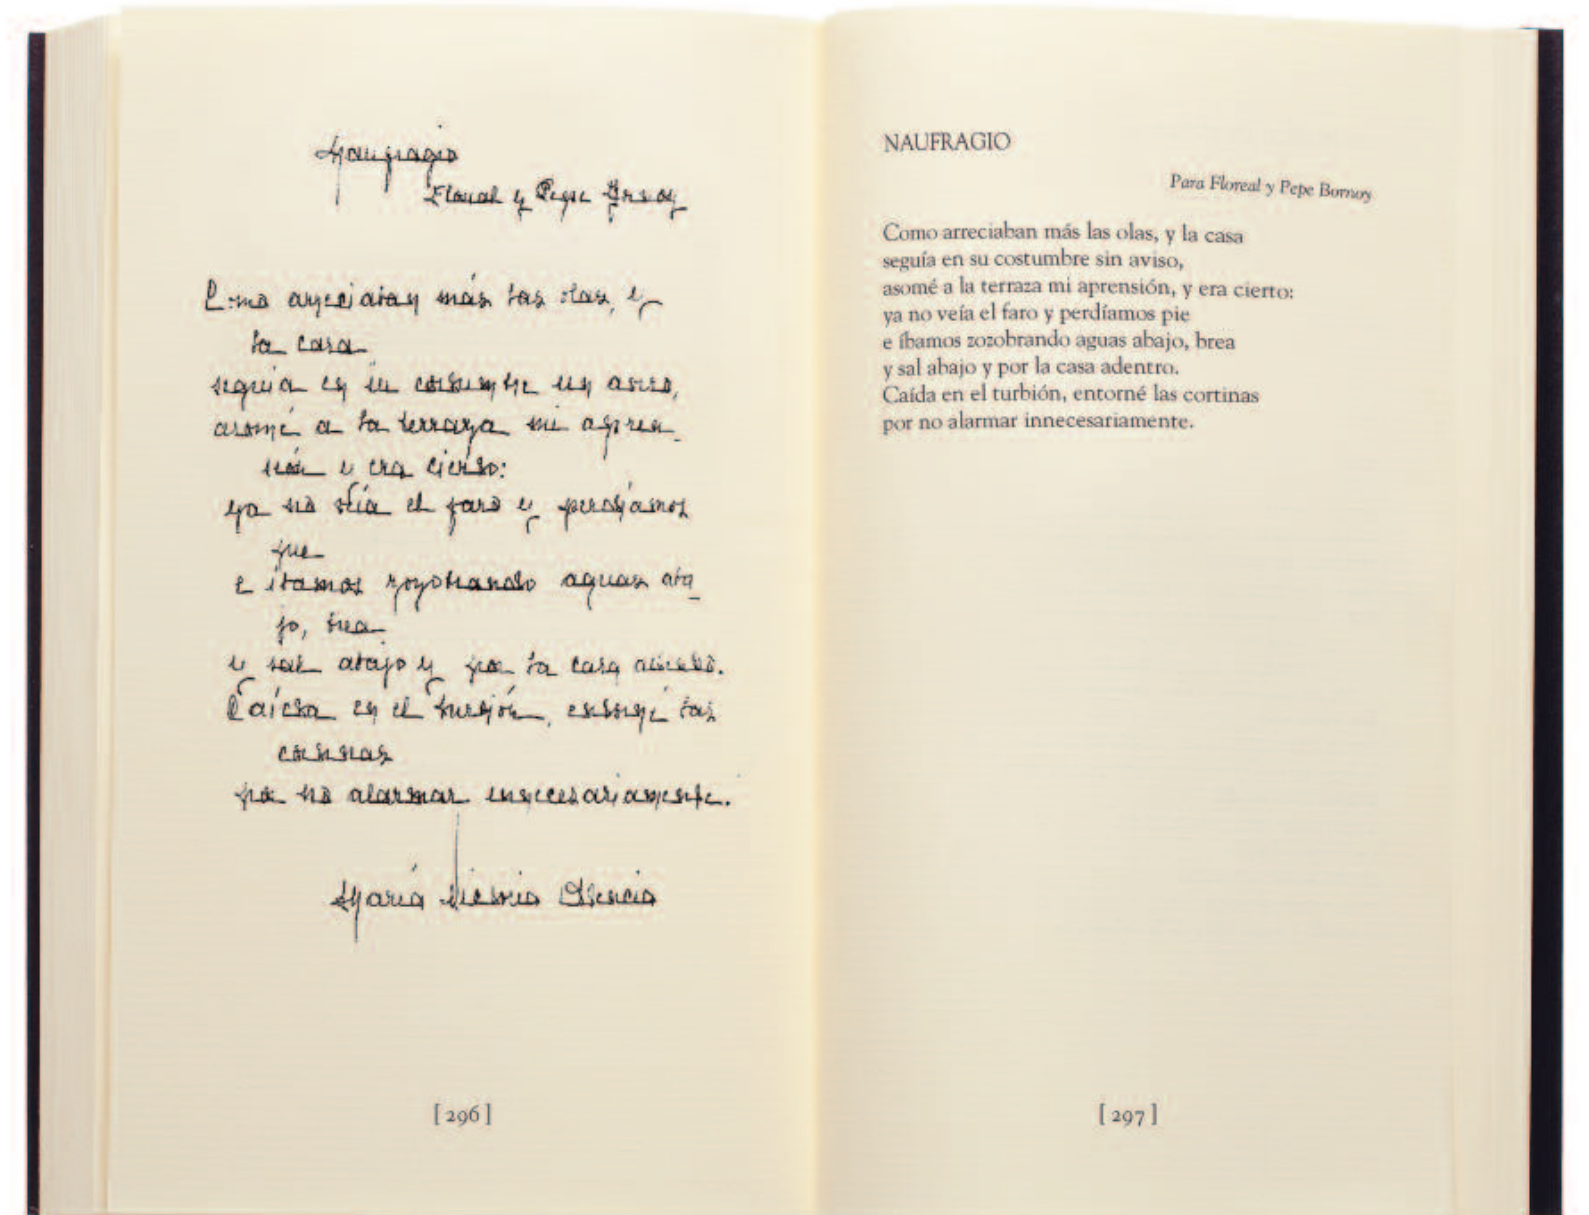 Naufragio
Floreal y Pepe Bornoy
Como arreciaban más las olas, y
la casa
seguía en su costumbre sin aviso,
asomé a la terraza mi apren_
sión y era cierto:
ya no veía el faro y perdíamos
pie
e íbamos zozobrando aguas aba_
jo, brea
y sal abajo y por la casa adentro.
Caída en el turbión, entorné las
cortinas
por no alarmar innecesariamente.
María Victoria Atencia
[ 296 ]
NAUFRAGIO
Para Floreal y Pepe Bornoy
Como arreciaban más las olas, y la casa
seguía en su costumbre sin aviso,
asomé a la terraza mi aprensión, y era cierto:
ya no veía el faro y perdíamos pie
e íbamos zozobrando aguas abajo, brea
y sal abajo y por la casa adentro.
Caída en el turbión, entorné las cortinas
por no alarmar innecesariamente.
[ 297 ]